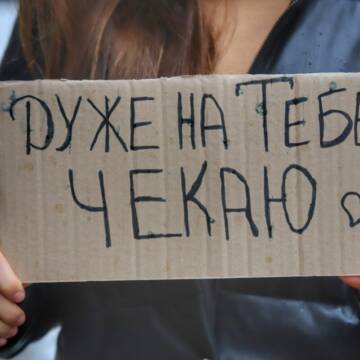 ДУЖЕ НА ТЕБЕ
ЧЕКАЮ